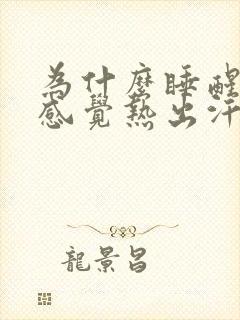 為什麼睡醒
感覺熱出汗
龍景昌